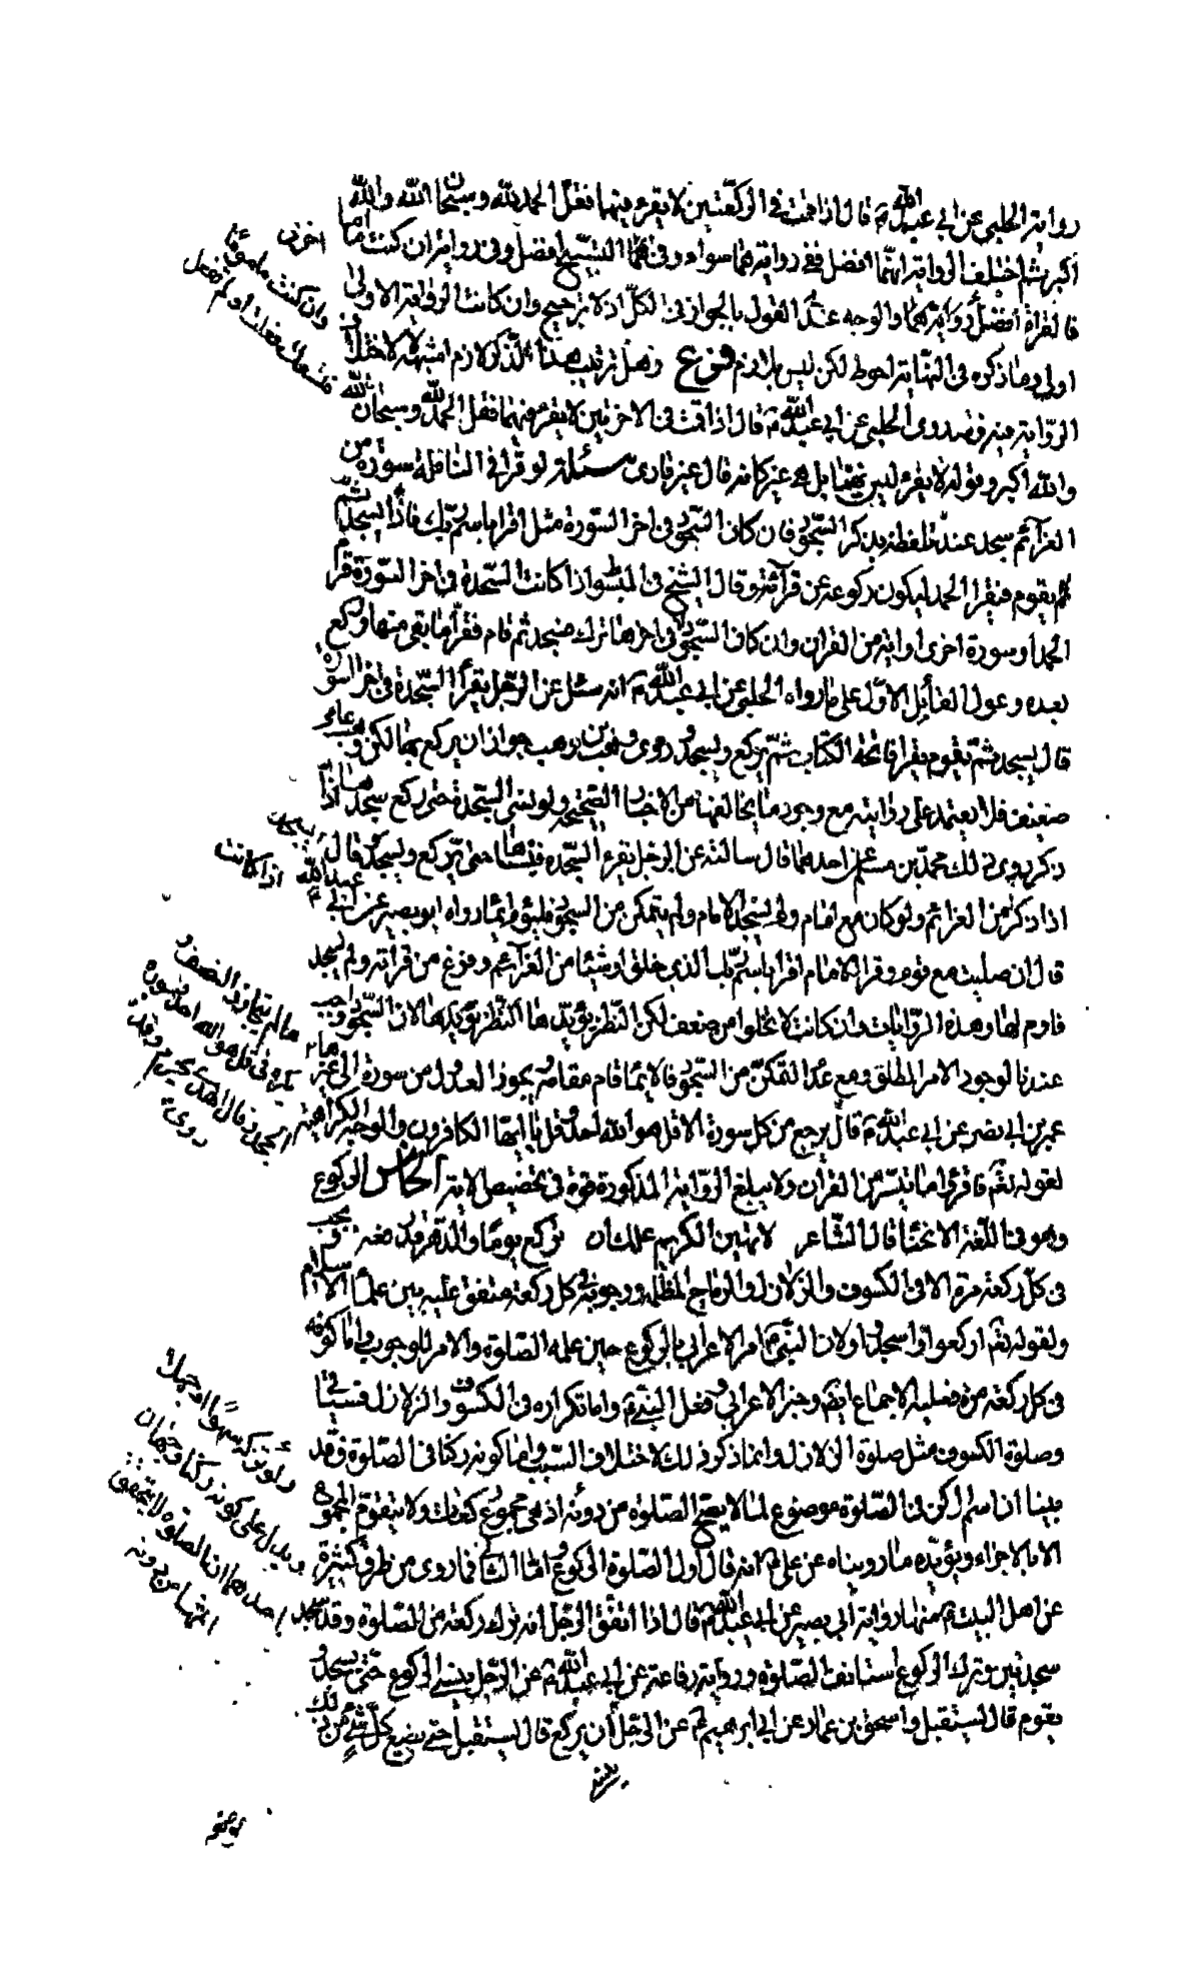 رواية الحلبي عن ابي عبد الله ع قال اذا قمت في الركعتين لا يقرء فيهما فقل الحمد لله وسبحان الله والله
اكبر ثم اختلف الرواية ايهما افضل ففي رواية هما سواء وفي التسبيح افضل وفي رواية ان كنت اماما
فالقراة افضل رواية هما والوجه عندنا القول بالجواز في الكل اذ لا ترجيح وان كانت الرواية الاولى
اولى وما ذكره في النهاية احوط لكن ليس بلازم فرع وهل ترتيب هذا الذكر لازم اشبهه لا لاختلاف
الرواية فيه فقد روى الحلبي عن ابي عبد الله ع قال اذا قمت في الاخرتين لا يقرء فيهما فقل الحمد لله وسبحان الله
والله اكبر وقوله لا يقرء ليس نهيا بل هي غير كانه قال غير قارئ مسئلة لو قرا في النافلة سورة من
العزائم سجد عند تلفظه بذكر السجود فان كان السجود في اخر السورة مثل اقرا باسم ربك فاذا سجد
يقوم فيقرا الحمد ليكون ركوعه عن قرآءة وقال الشيخ في المبسوط اذا كانت السجدة في اخر السورة قرا
الحمد او سورة اخرى او اية من القران وان كان السجود في اخرها ترك فسجد ثم قام فقرا ما بقى منها وركع
بعده وعول القائل الاول على ما رواه الحلبي عن ابي عبد الله ع انه سئل عن الرجل يقرأ السجدة في اخر السورة
قال يسجد ثم يقوم يقرا فاتحة الكتاب ثم يركع ويسجد وروى وهب بن وهب جواز ان يركع بها لكن وهب عامي
ضعيف فلا يعتمد على روايته مع وجود ما يخالفها من الاخبار الصحيحة ولو نسى السجدة حتى ركع سجد اذا
ذكر روى ذلك محمد بن مسلم عن احدهما قال سالته عن الرجل يقرء السجدة فينساها حتى يركع ويسجد قال يسجد
اذا ذكر من العزائم ولو كان مع امام ولم يسجد الامام ولم يتمكن من السجود فليؤم ايماء رواه ابو بصير عن ابي عبد الله
قال ان صليت مع قوم وقرا الامام اقرا باسم ربك الذي خلق او شيئا من العزائم وفرغ من قراته ولم يسجد
فاوم لها وهذه الروايات وان كانت لا تخلوا من ضعف لكن النظر يؤيدها لان السجود واجب
عندنا لوجود الامر المطلق ومع عدم التمكن من السجود فالايماء قام مقامه يجوز العدول من سورة الى غيرها
عن ابي بصير عن ابي عبد الله ع قال يرجع من كل سورة الا قل هو الله احد وقل يا ايها الكافرون والوجه الكراهية
لقوله تعم فاقرؤا ما تيسر من القران ولا يبلغ الرواية المذكورة قوة في تخصيص الاية الخامس الركوع
وهو في اللغة الانحناء قال الشاعر لا تهين الكريم علك ان تركع يوما والدهر قد رفعه ويجب
في كل ركعة مرة الا في الكسوف والزلازل والرياح المظلمة ووجوبه في كل ركعة متفق عليه بين علماء الاسلام
ولقوله تعم اركعوا واسجدوا ولان النبي ص امر الاعرابي بالركوع حين علمه الصلوة والامر للوجوب واما كونه
في كل ركعة مرة فعليه الاجماع ايضا وخبر الاعرابي وفعل النبي ص واما تكراره في الكسوف والزلازل فسياتي
وصلوة الكسوف مثل صلوة الزلازل وانما ذكر ذلك لاختلاف السبب واما كونه ركنا في الصلوة فقد
بينا ان اسم الركن في الصلوة موضوع لما لا يصح الصلوة من دونه اذ هي مجموع ركعات ولا يتقوم المجموع
الا بالاجزاء ويؤيده ما رويناه عن علي ع انه قال اول الصلوة الركوع واما الثاني فما روى من طرق كثيرة
عن اهل البيت ع منها رواية ابي بصير عن ابي عبد الله ع قال اذا ايقن الرجل انه ترك ركعة من الصلوة وقد سجد
سجدتين وترك الركوع استانف الصلوة ورواية رفاعة عن ابي عبد الله ع عن الرجل ينسى الركوع حتى يسجد
يقوم قال يستقبل واسحق بن عمار عن ابي ابرهيم ع عن الرجل ان يركع قال يستقبل حتى يضع كل شئ من ذلك
وان كنت ماموما
فسبحان فعلت او لم تفعل
اذا كانت
ما لم يتجاوز النصف و
يكره في قل هو الله احد وسورة
الجحد وقال الهدى يحرم وقد
روى
ولو تركه سهوا او جهلا
ويدل على كونه ركنا وجهان
احدهما ان الصلوة لا يتحقق
اسمها من دونه